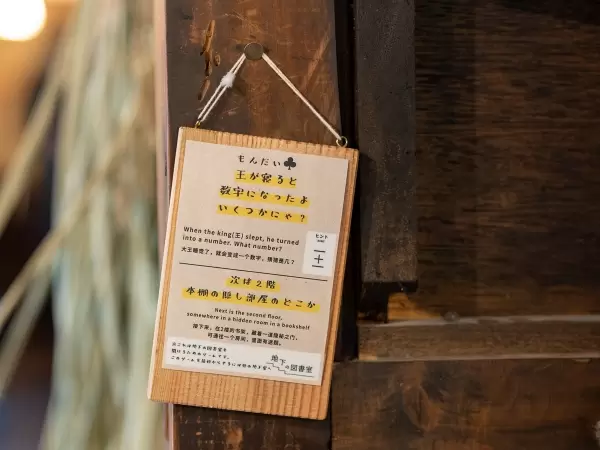 もんだい♣
王が寝ると
数字になったよ
いくつかにゃ？
When the king(王) slept, he turned
into a number. What number?
大王睡觉了，就会变成一个数字，猜猜是几？
ヒント
一十一
次は2階
本棚の隠し部屋のどこか
Next is the second floor,
somewhere in a hidden room in a bookshelf
接下来，在2楼的书架，藏着一道隐秘之门，
可通往一个房间，里面有迷题。
地下の図書室